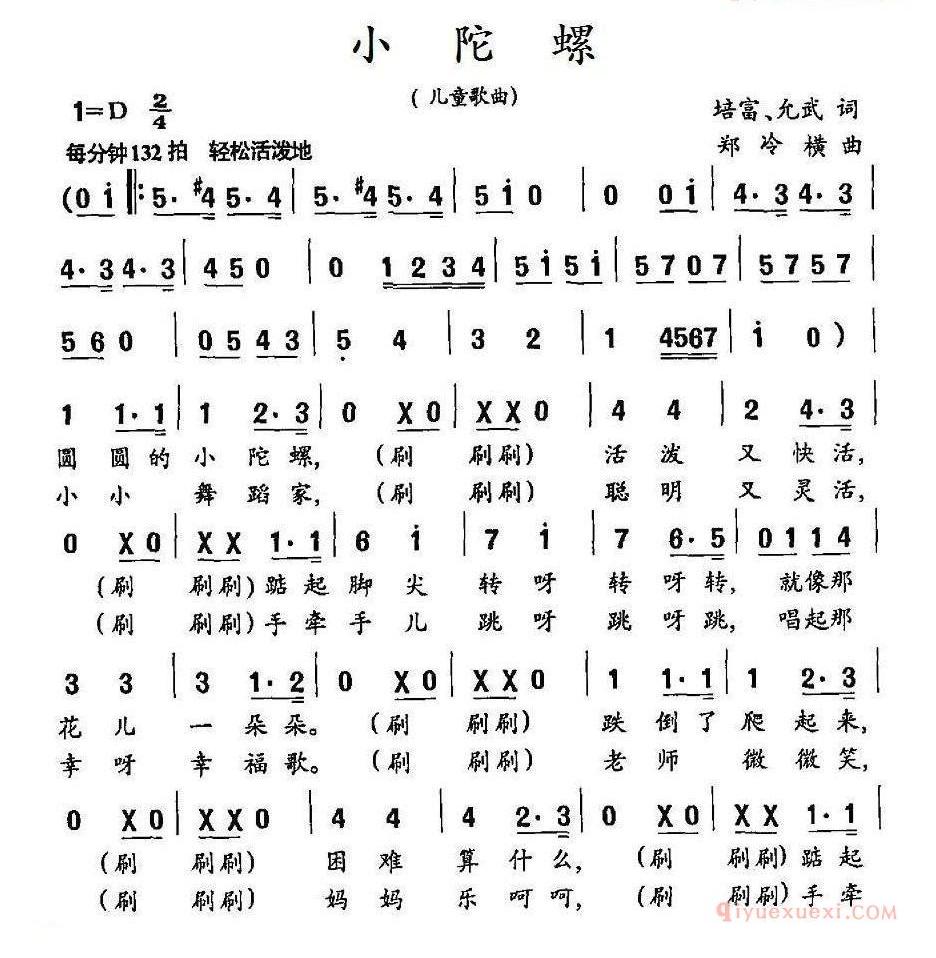 小 陀 螺
(儿童歌曲)
1=D 2/4
培富、允武 词
每分钟132拍 轻松活泼地
郑 冷 横 曲
(0 i ‖: 5· #4 5· 4 | 5· #4 5· 4 | 5 i 0 | 0 0 i | 4· 3 4· 3 |
4· 3 4· 3 | 4 5 0 | 0 1 2 3 4 | 5 i 5 i | 5 7 0 7 | 5 7 5 7 |
5 6 0 | 0 5 4 3 | 5̣ 4 | 3 2 | 1 4567 | i 0 )
1 1· 1 | 1 2· 3 | 0 X 0 | X X 0 | 4 4 | 2 4· 3 |
圆 圆 的 小 陀 螺, (刷 刷刷) 活 泼 又 快 活,
小 小 舞 蹈 家, (刷 刷刷) 聪 明 又 灵 活,
0 X 0 | X X 1· 1 | 6 i | 7 i | 7 6· 5 | 0 1 1 4 |
(刷 刷刷) 踮 起 脚 尖 转 呀 转 呀 转, 就像那
(刷 刷刷) 手 牵 手 儿 跳 呀 跳 呀 跳, 唱起那
3 3 | 3 1· 2 | 0 X 0 | X X 0 | 1 1· 1 | 1 2· 3 |
花 儿 一 朵 朵。 (刷 刷刷) 跌 倒 了 爬 起 来,
幸 呀 幸 福 歌。 (刷 刷刷) 老 师 微 微 笑,
0 X 0 | X X 0 | 4 4 | 4 2· 3 | 0 X 0 | X X 1· 1 |
(刷 刷刷) 困 难 算 什 么, (刷 刷刷) 踮 起
(刷 刷刷) 妈 妈 乐 呵 呵, (刷 刷刷) 手 牵
qiyuexuexi.COM